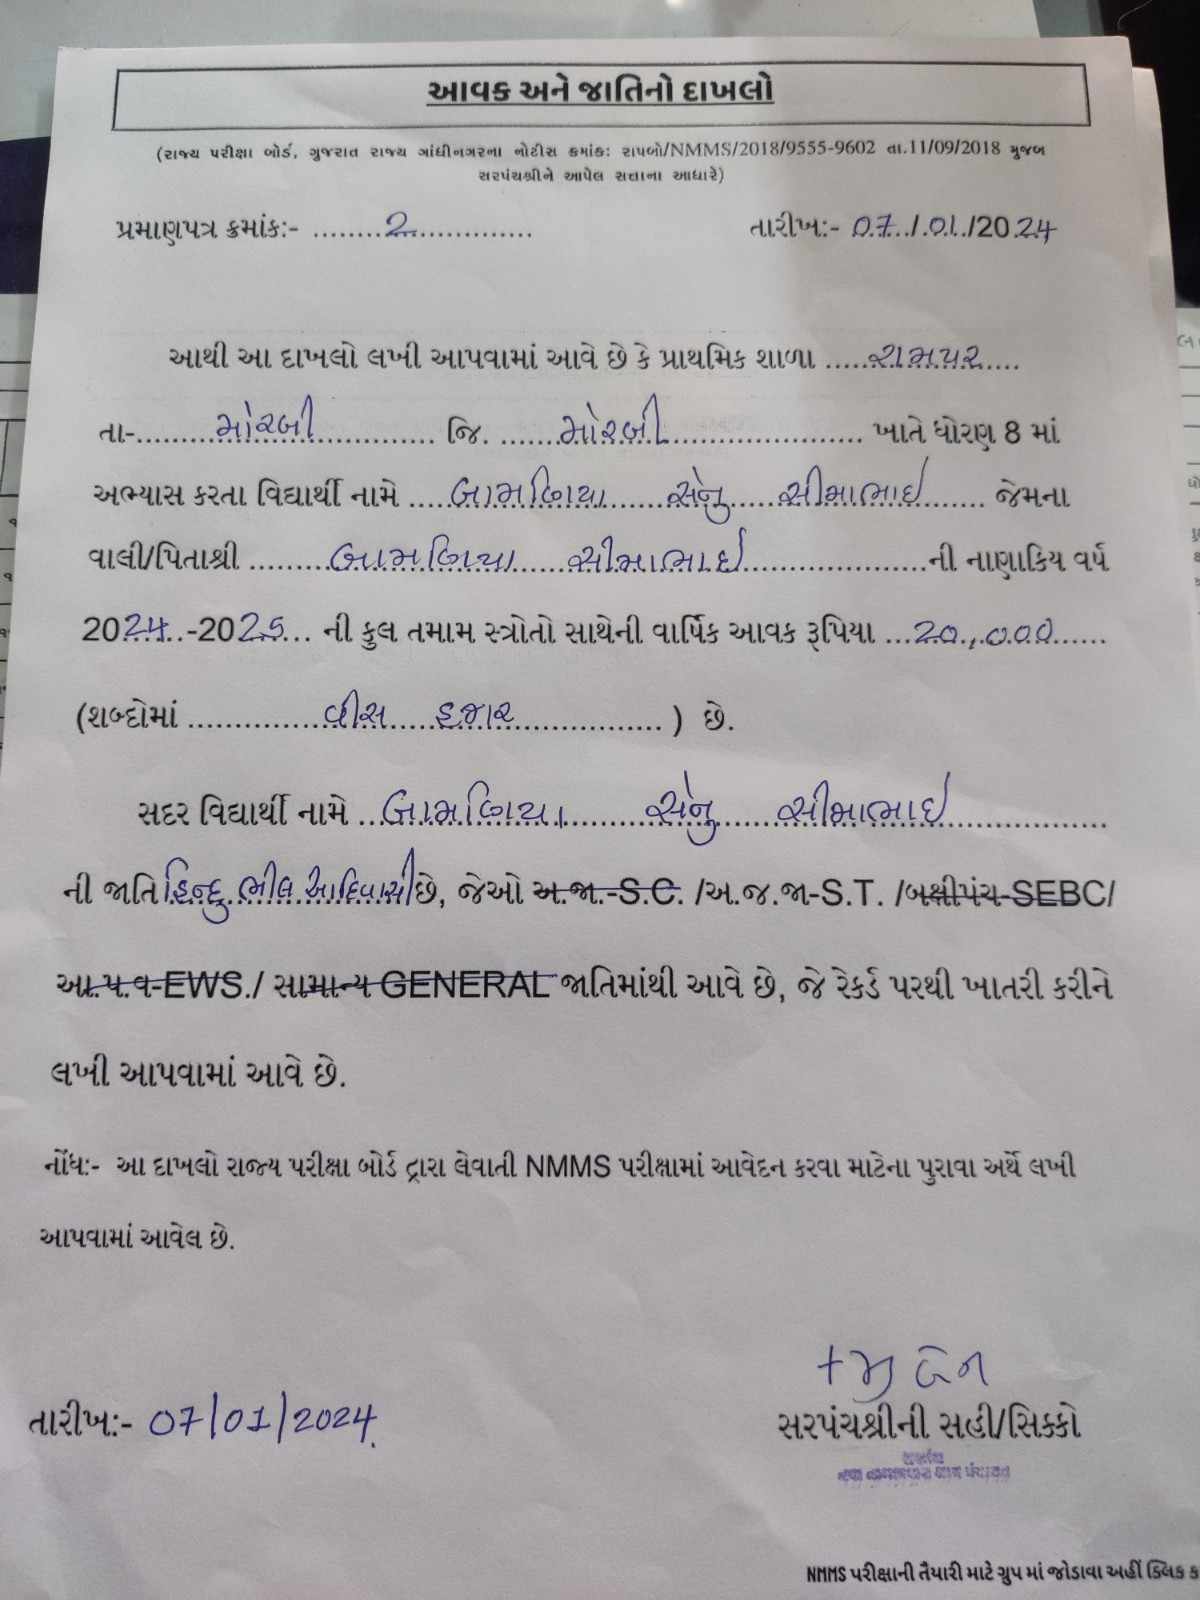 આવક અને જાતિનો દાખલો
(રાજ્ય પરીક્ષા બોર્ડ, ગુજરાત રાજ્ય ગાંધીનગરના નોટીસ ક્રમાંક: રાપબો/NMMS/2018/9555-9602 તા.11/09/2018 મુજબ
સરપંચશ્રીને આપેલ સત્તાના આધારે)
પ્રમાણપત્ર ક્રમાંક:- ........2.............. તારીખ:- 07../.01./2024
આથી આ દાખલો લખી આપવામાં આવે છે કે પ્રાથમિક શાળા .....રામપર....
તા-.........મોરબી............. જિ. .......મોરબી..................... ખાતે ધોરણ 8 માં
અભ્યાસ કરતા વિદ્યાર્થી નામે ....બામણિયા......સેનુ.....સીમાભાઇ....... જેમના
વાલી/પિતાશ્રી .........બામણિયા......સીમાભાઇ....................ની નાણાકિય વર્ષ
2024...-2025... ની કુલ તમામ સ્ત્રોતો સાથેની વાર્ષિક આવક રૂપિયા ...20,000......
(શબ્દોમાં ...............વીસ....હજાર.................) છે.
સદર વિદ્યાર્થી નામે ...બામણિયા.........સેનુ.......સીમાભાઇ.................
ની જાતિ હિન્દુ ભીલ આદિવાસી છે, જેઓ અ.જા.-S.C. /અ.જ.જા-S.T. /બક્ષીપંચ-SEBC/
આ.પ.વ-EWS./ સામાન્ય GENERAL જાતિમાંથી આવે છે, જે રેકર્ડ પરથી ખાતરી કરીને
લખી આપવામાં આવે છે.
નોંધ:- આ દાખલો રાજ્ય પરીક્ષા બોર્ડ દ્વારા લેવાતી NMMS પરીક્ષામાં આવેદન કરવા માટેના પુરાવા અર્થે લખી
આપવામાં આવેલ છે.
તારીખ:- 07/01/2024
સરપંચશ્રીની સહી/સિક્કો
NMMS પરીક્ષાની તૈયારી માટે ગ્રુપ માં જોડાવા અહીં ક્લિક ક